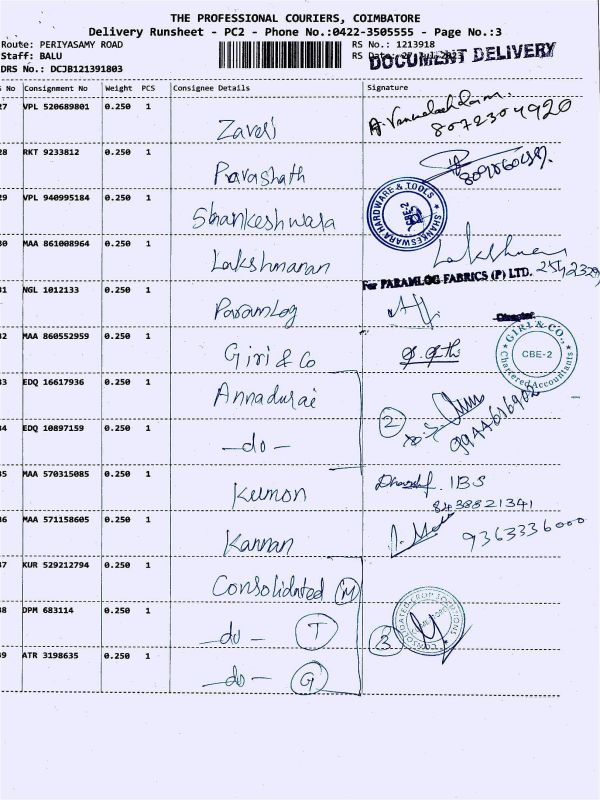 THE PROFESSIONAL COURIERS, COIMBATORE
Delivery Runsheet - PC2 - Phone No.:0422-3505555 - Page No.:3
Route: PERIYASAMY ROAD RS No.: 1213918
Staff: BALU RS Date: 27 Jul
DOCUMENT DELIVERY
DRS No.: DCJB121391803
No Consignment No Weight PCS Consignee Details Signature
27 VPL 520689801 0.250 1 Zaveri
8072304920
28 RKT 9233812 0.250 1
29 VPL 940995184 0.250 1 Shankeshwara
SHANKESWARA HARDWARE & TOOLS CBE-2
30 MAA 861008964 0.250 1 Lakshmanan
For PARAMLOG FABRICS (P) LTD.
31 NGL 1012133 0.250 1 Paramlog
32 MAA 860552959 0.250 1 Giri & Co
GIRI & CO., CBE-2 Chartered Accountants
33 EDQ 16617936 0.250 1 Annadurai
34 EDQ 10897159 0.250 1 -do- 2
35 MAA 570315085 0.250 1 Kumon
IBS
8438821341
36 MAA 571158605 0.250 1 Kannan
9363336000
37 KUR 529212794 0.250 1 Consolidated M
38 DPM 683114 0.250 1 -do- T 3
39 ATR 3198635 0.250 1 -do- G